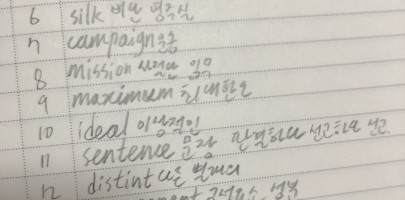 6 silk 비단 명주실
7 campaign 운동
8 mission 사절단 임무
9 maximum 최대한도
10 ideal 이상적인
11 sentence 문장 판결하다 선고하다 선고
12 distint 다른 별개의
구성요소 성분